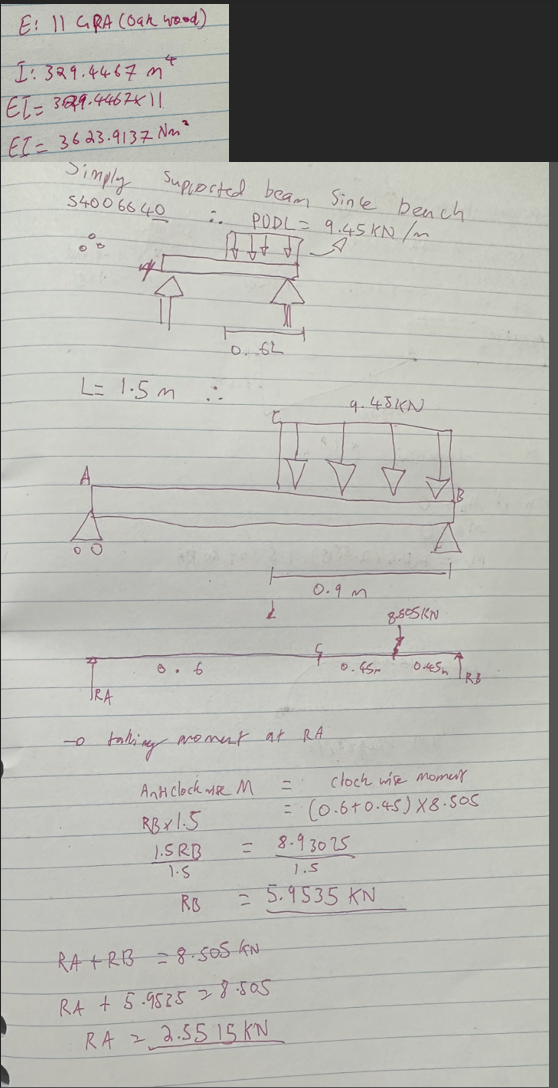 E: 11 GPA (Oak wood)
I: 329.4467 m⁴
EI = 329.4467 x 11
EI = 3623.9137 Nm²
Simply supported beam since bench
S4006640 ∴ PUDL = 9.45 KN/m
0.6L
L = 1.5 m ∴
9.45KN
C
A
B
0.9 m
8.505KN
C
0.6
0.45m
0.45m
RA
RB
→ taking moment at RA
Anticlockwise M = clockwise moment
RB x 1.5 = (0.6 + 0.45) x 8.505
1.5 RB = 8.93025
1.5 1.5
RB = 5.9535 KN
RA + RB = 8.505 KN
RA + 5.9535 = 8.505
RA = 2.5515 KN